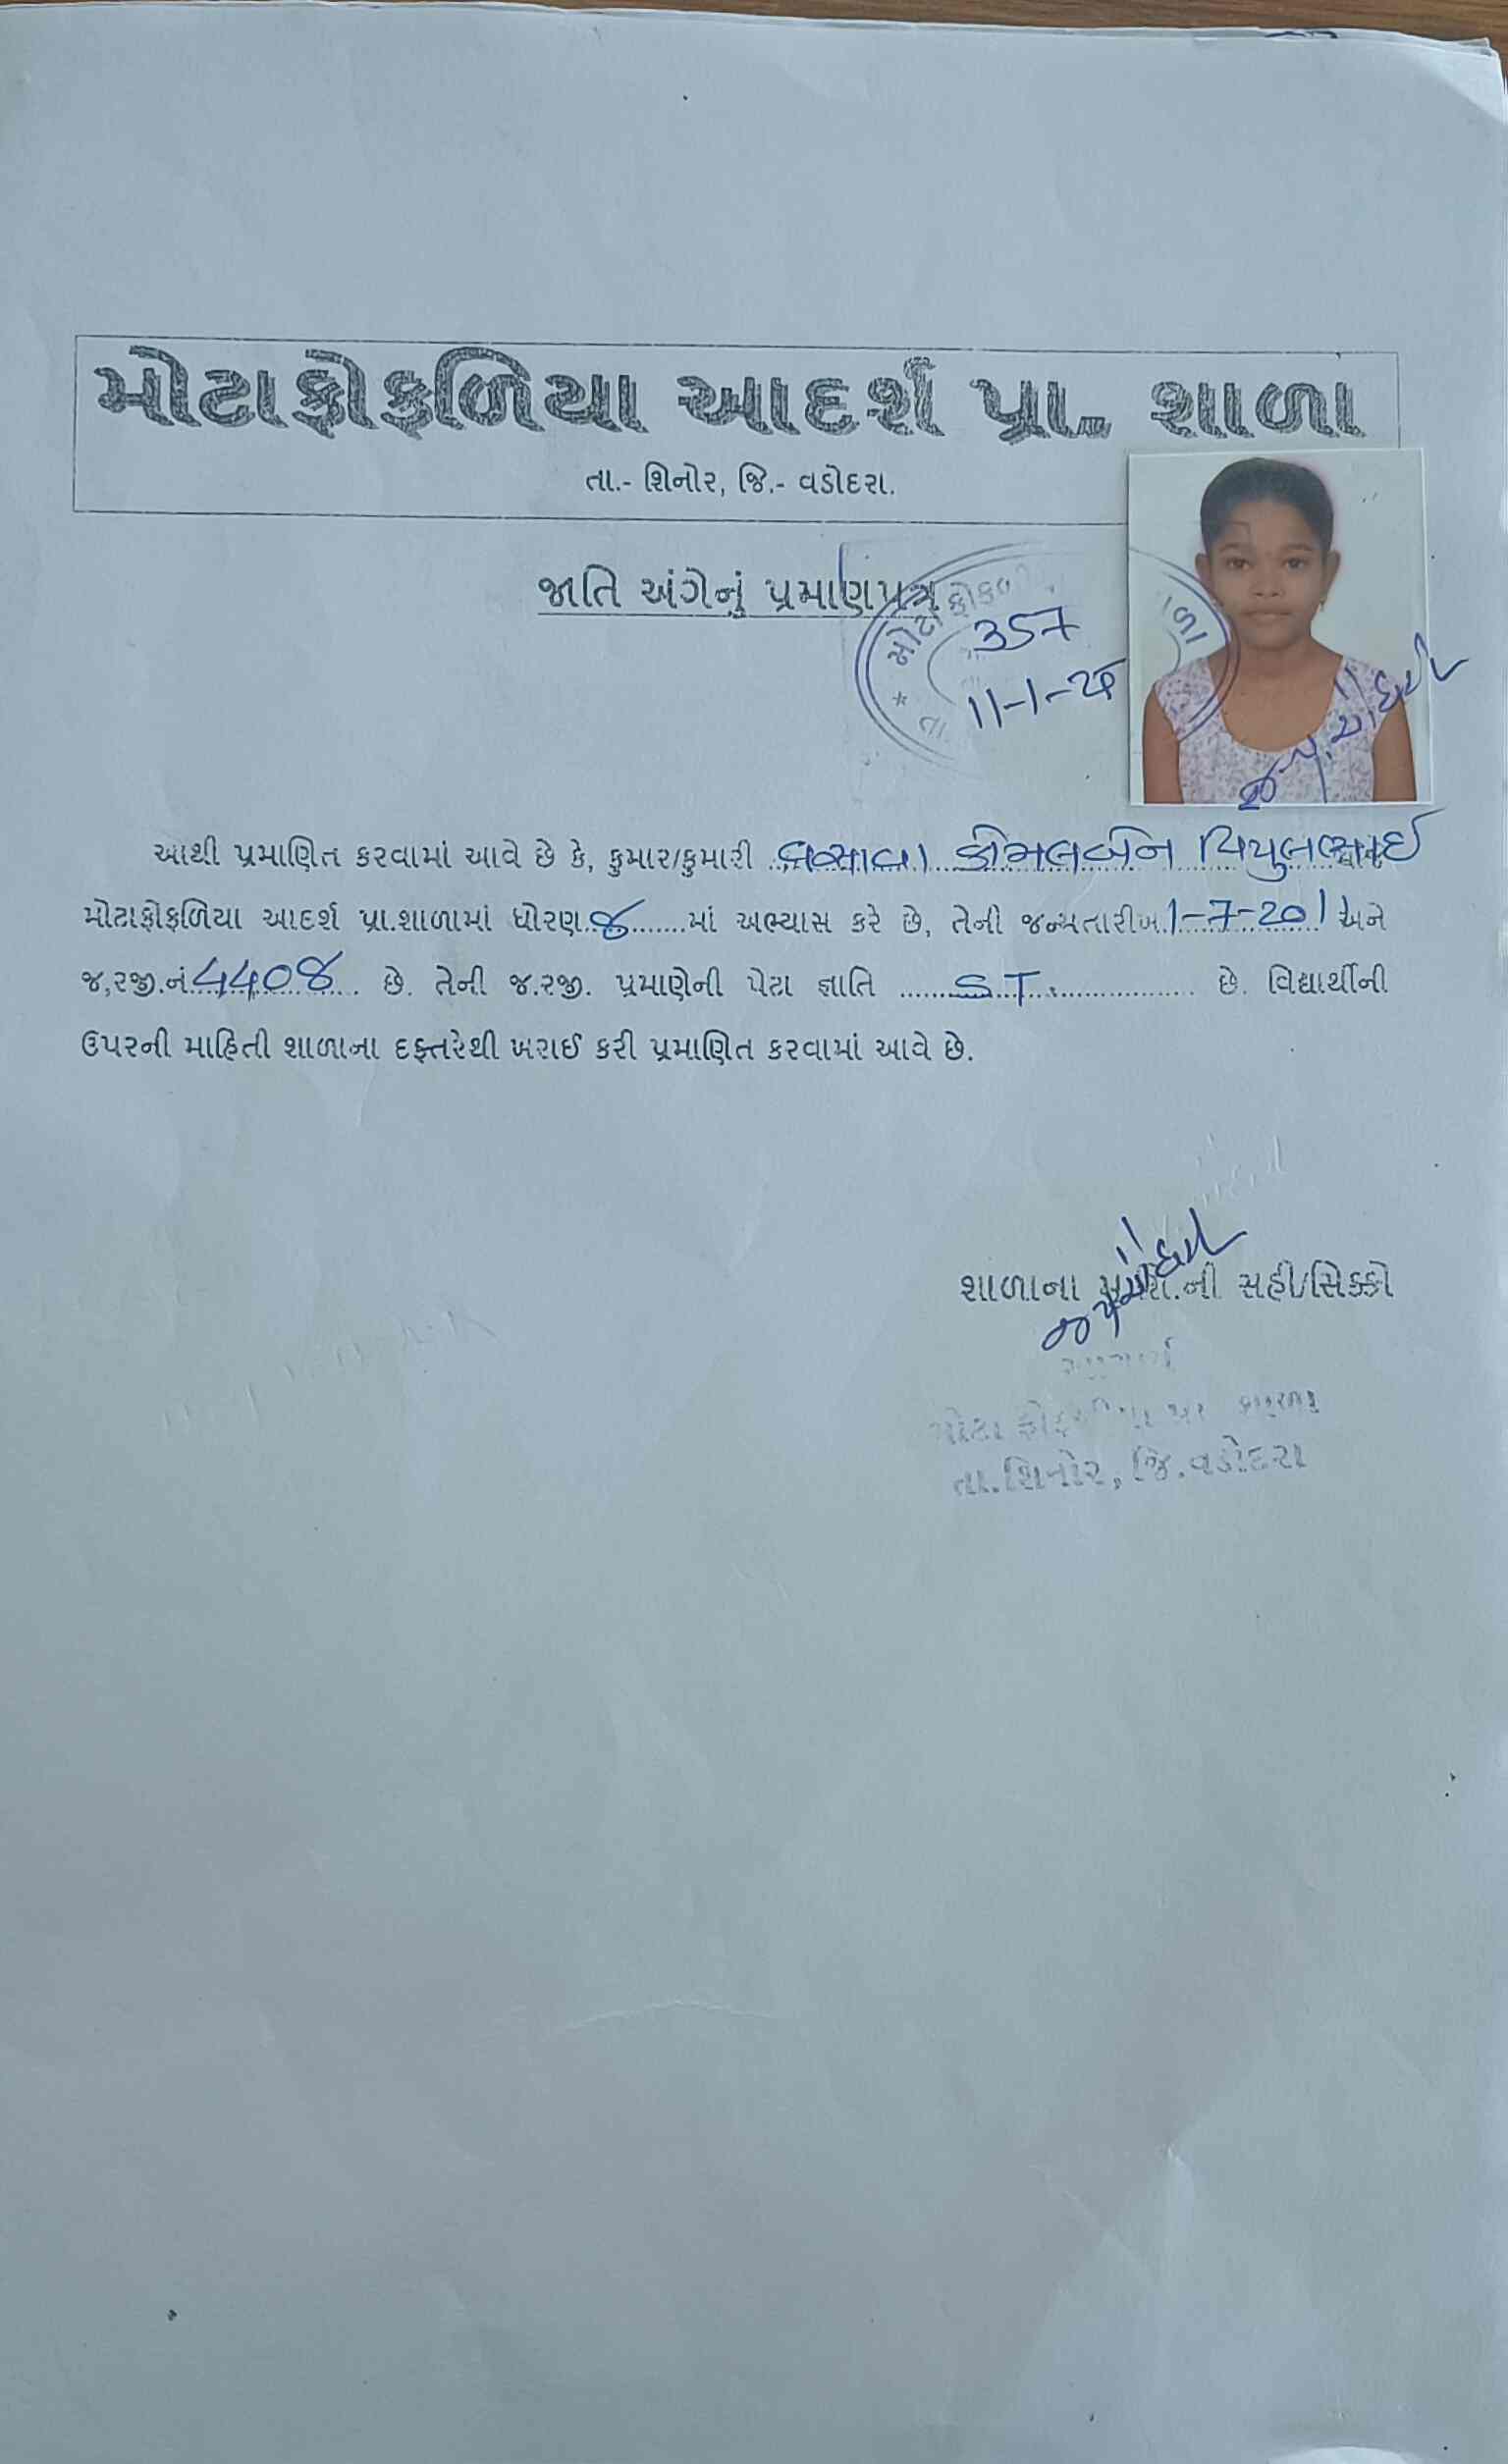 મોટાફોફળિયા આદર્શ પ્રા. શાળા
તા.- શિનોર, જિ.- વડોદરા.
જાતિ અંગેનું પ્રમાણપત્ર
મોટા ફોફળ
357
11-1-25
આથી પ્રમાણિત કરવામાં આવે છે કે, કુમાર/કુમારી વસાવા કોમલબેન વિપુલભાઈ
મોટાફોફળિયા આદર્શ પ્રા.શાળામાં ધોરણ 8 માં અભ્યાસ કરે છે, તેની જન્મતારીખ 1-7-2011 અને
જ.રજી.નં 4408 છે. તેની જ.રજી. પ્રમાણેની પેટા જ્ઞાતિ S.T. છે. વિદ્યાર્થીની
ઉપરની માહિતી શાળાના દફ્તરેથી ખરાઈ કરી પ્રમાણિત કરવામાં આવે છે.
શાળાના ની સહી/સિક્કો
મોટા
તા.શિનોર, જિ.વડોદરા